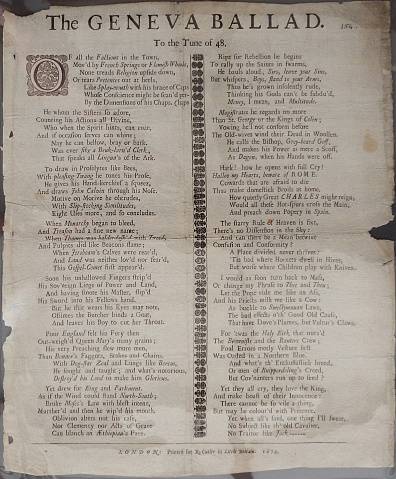 The GENEVA BALLAD.
To the Tune of 48.
OF all the Factions in the Town,
Mov'd by French Springs or Flemish Wheels,
None treads Religion upside down,
Or tears Pretences out at heels,
Like Splay-mouth with his brace of Caps
Whose Conscience might be scan'd per-
By the Dimensions of his Chaps, (haps
He whom the Sisters so adore,
Counting his Actions all Divine,
Who when the Spirit hints, can roar,
And if occasion serves can whine;
Nay he can bellow, bray or bark.
Was ever
That speaks all Lingua's of the Ark.
To draw in Proselytes like Bees,
With pleasing Twang he tones his Prose,
He gives his Hand-kerchief a squeez,
And draws John Calvin through his Nose.
Motive on Motive he obtrudes,
With Slip-stocking Similitudes,
Eight Uses more, and so concludes.
When Monarchy began to bleed,
And Treason had a fine new name;
When
And Pulpits did like Beacons flame;
When Jeroboam's Calves were rear'd,
And Laud was neither lov'd nor fear'd,
This Gospel-Comet first appear'd.
Soon his unhallowed Fingers strip'd
His Sov'reign Liege of Power and Land,
And having smote his Master, slip'd
His Sword into his Fellows hand.
But he that wears his Eyes may note,
Oftimes the Butcher binds a Goat,
And leaves his Boy to cut her Throat.
Poor England felt his Fury then
Out-weigh'd Queen Mary's many grains;
His very Preaching slew more men,
Than Bonner's Faggots, Stakes and Chains.
With Dog-star Zeal and Lungs like Boreas,
He fought and taught; and what's notorious,
Destroy'd his Lord to make him Glorious.
Yet drew for King and Parliament,
As if the Wind could stand North-South;
Broke Moses's Law with blest intent,
Murther'd and then he wip'd his mouth.
Oblivion alters not his case,
Nor Clemency nor Acts of Grace
Can blanch an Æthiopian's Face.
Ripe for Rebellion he begins
To rally up the Saints in swarms,
He bauls aloud, Sirs, leave your Sins,
But whispers, Boys, stand to your Arms,
Thus he's grown insolently rude,
Thinking his Gods can't be subdu'd,
Money, I mean, and Multitude.
Magistrates he regards no more
Than St. George or the Kings of Colen;
Vowing he'll not conform before
The Old-wives wind their Dead in Woollen.
He calls the Bishop, Gray-beard Goff,
And makes his Power as mere a Scoff,
As Dagon, when his Hands were off.
Hark! how he opens with full Cry!
Hallow my Hearts, beware of ROME.
Cowards that are afraid to die
Thus make domestick Broils at home.
How quietly Great CHARLES might reign,
Would all these Hot-spurs cross the Main,
And preach down Popery in Spain.
The starry Rule of Heaven is fixt,
There's no Dissention in the Sky:
And can there be a Mean betwixt
Confusion and Conformity?
A Place divided never thriv'd:
'Tis bad where Hornets dwell in Hives,
But worse where Children play with Knives.
I would as soon turn back to Mass,
Or change my Phrase to Thee and Thou;
Let the Pope ride me like an Ass,
And his Priests milk me like a Cow:
As buckle to Smectymnuan Laws,
The bad effects o'th' Good Old Cause,
That have Dove's Plumes, but Vultur's Claws.
For 'twas the Holy Kirk that nurs'd
The Brownists and the Ranters Crew;
Foul Errors motly Vesture first
Was Oaded in a Northern Blue.
And what's th' Enthusiastick breed,
Or men of Knipperdoling's Creed,
But Cov'nanters run up to seed!
Yet they all cry, they love the King,
And make boast of their Innocence:
There cannot be so vile a thing,
But may be colour'd with Pretence.
Yet when all's said, one thing I'll swear,
No Subject like th' old Cavalier,
No Traitor like Jack
LONDON: Printed for R. Cutler in Little Britain. 1674.